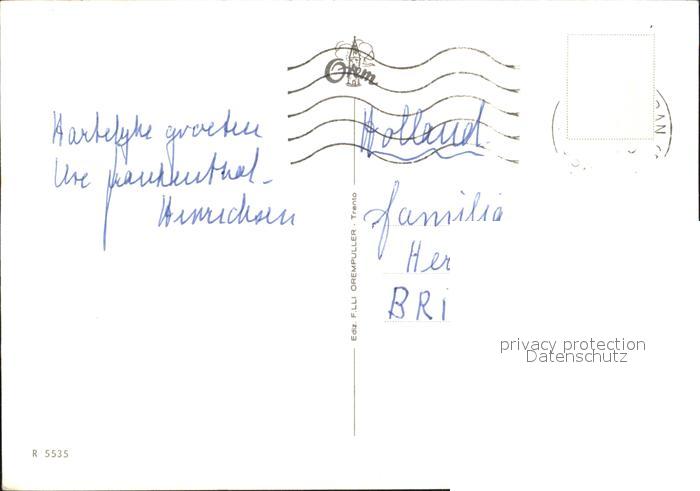 Hartelyke groeten
Ure frankenthal-
Hinrichsen
Orem
Holland
familia
Her
BRI
Ediz. F.LLI OREMPULLER - Trento
privacy protection
Datenschutz
R 5535